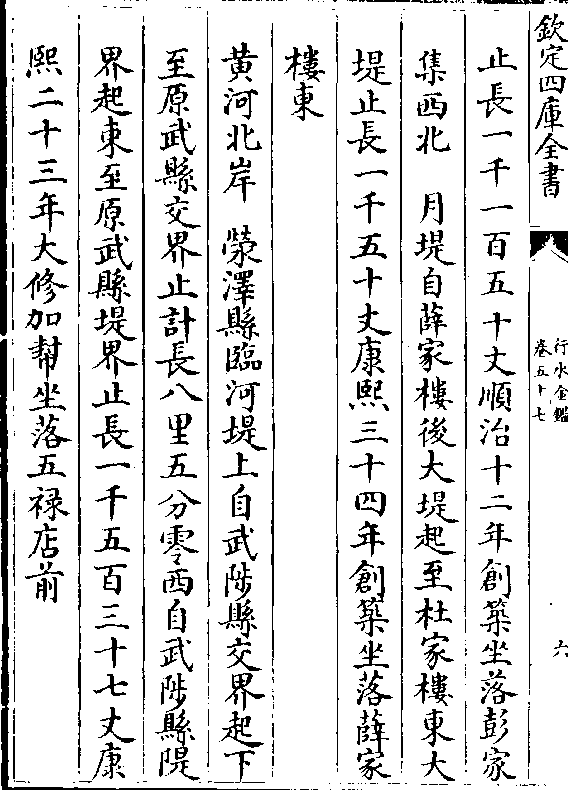 欽定四庫全書
行水金鑑
卷五十七
六
止長一千一百五十丈順治十二年創築坐落彭家
集西北　月堤自薛家樓後大堤起至杜家樓東大
堤止長一千五十丈康熙三十四年創築坐落薛家
樓東
黄河北岸　滎澤縣臨河堤上自武陟縣交界起下
至原武縣交界止計長八里五分零西自武陟縣隄
界起東至原武縣堤界止長一千五百三十七丈康
熙二十三年大修加幫坐落五禄店前